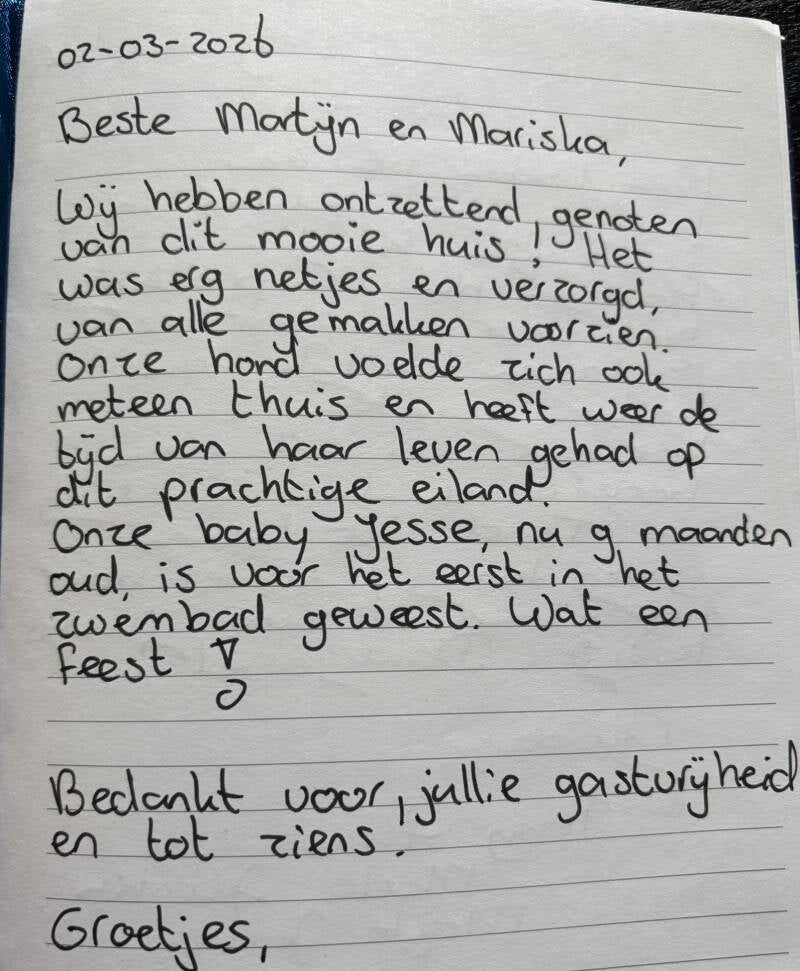 02-03-2026
Beste Martijn en Mariska,
Wij hebben ontzettend genoten
van dit mooie huis! Het
was erg netjes en verzorgd,
van alle gemakken voorzien.
Onze hond voelde zich ook
meteen thuis en heeft weer de
tijd van haar leven gehad op
dit prachtige eiland.
Onze baby Jesse, nu 9 maanden
oud, is voor het eerst in het
zwembad geweest. Wat een
feest!
Bedankt voor jullie gastvrijheid
en tot ziens.
Groetjes,